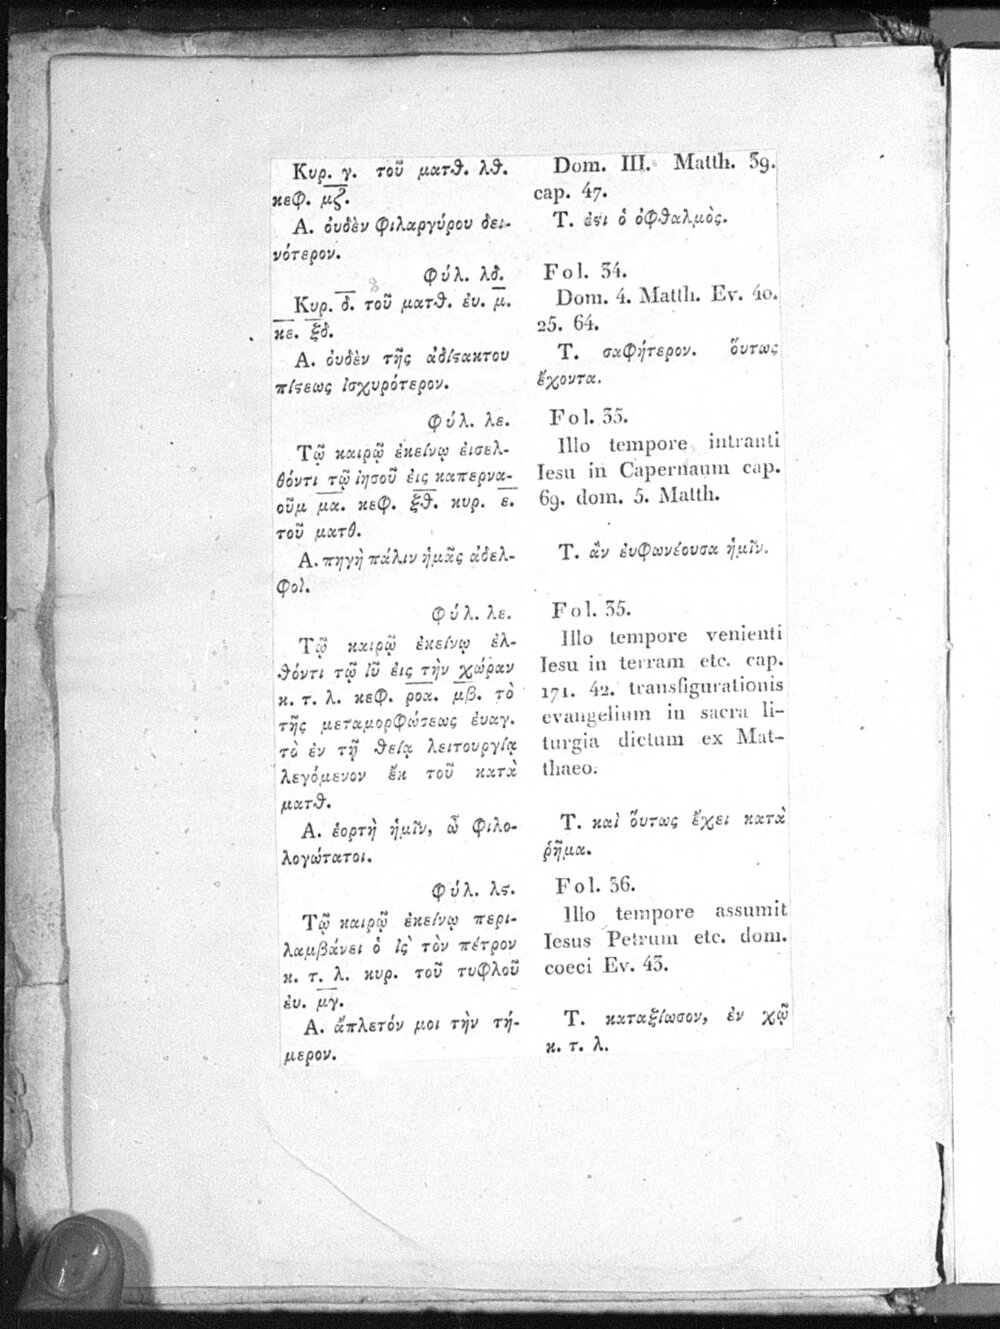 Κυρ. γ. τοῦ ματθ. λθ.
κεφ. μζ.
Α. ὀυδὲν φιλαργύρου δει-
νότερον.
Φύλ. λδ.
Κυρ. δ. τοῦ ματθ. ἐυ. μ.
κε. ξδ.
Α. ὀυδὲν τῆς ἀδίϛακτου
πίϛεως ἰσχυρότερον.
Φύλ. λε.
Τῷ καιρῷ ἐκείνῳ ἐισελ-
θόντι τῷ ἰησοῦ ἐις καπερνα-
οῦμ μα. κεφ. ξθ. κυρ. ε.
τοῦ ματθ.
Α. πηγὴ πάλιν ἡμᾶς ἀδελ-
φοὶ.
Φύλ. λε.
Τῷ καιρῷ ἐκείνῳ ἐλ-
θόντι τῷ ἰῦ ἐις τὴν χώραν
κ. τ. λ. κεφ. ροα. μβ. τὸ
τῆς μεταμορφώσεως ἐυαγ.
τὸ ἐν τῇ θείᾳ λειτουργίᾳ
λεγόμενον ἔκ τοῦ κατὰ
ματθ.
Α. ἑορτὴ ἡμῖν, ὦ φιλο-
λογώτατοι.
Φύλ. λϛ.
Τῷ καιρῷ ἐκείνῳ περι-
λαμβάνει ὁ ἰς τὸν πέτρον
κ. τ. λ. κυρ. τοῦ τυφλοῦ
ἐυ. μγ.
Α. ἄπλετόν μοι τὴν τή-
μερον.
Dom. III. Matth. 39.
cap. 47.
Τ. ἐϛι ὁ ὀφθαλμὸς.
Fol. 34.
Dom. 4. Matth. Ev. 40.
25. 64.
Τ. σαφήτερον. ὅυτως
ἔχοντα.
Fol. 35.
Illo tempore intranti
Iesu in Capernaum cap.
69. dom. 5. Matth.
Τ. ἂν ἐυφωνέουσα ἡμῖν.
Fol. 35.
Illo tempore venienti
Iesu in terram etc. cap.
171. 42. transfigurationis
evangelium in sacra li-
turgia dictum ex Mat-
thaeo.
Τ. καὶ ὅυτως ἔχει κατὰ
ῥῆμα.
Fol. 36.
Illo tempore assumit
Iesus Petrum etc. dom.
coeci Ev. 43.
Τ. καταξίωσον, ἐν χῷ
κ. τ. λ.